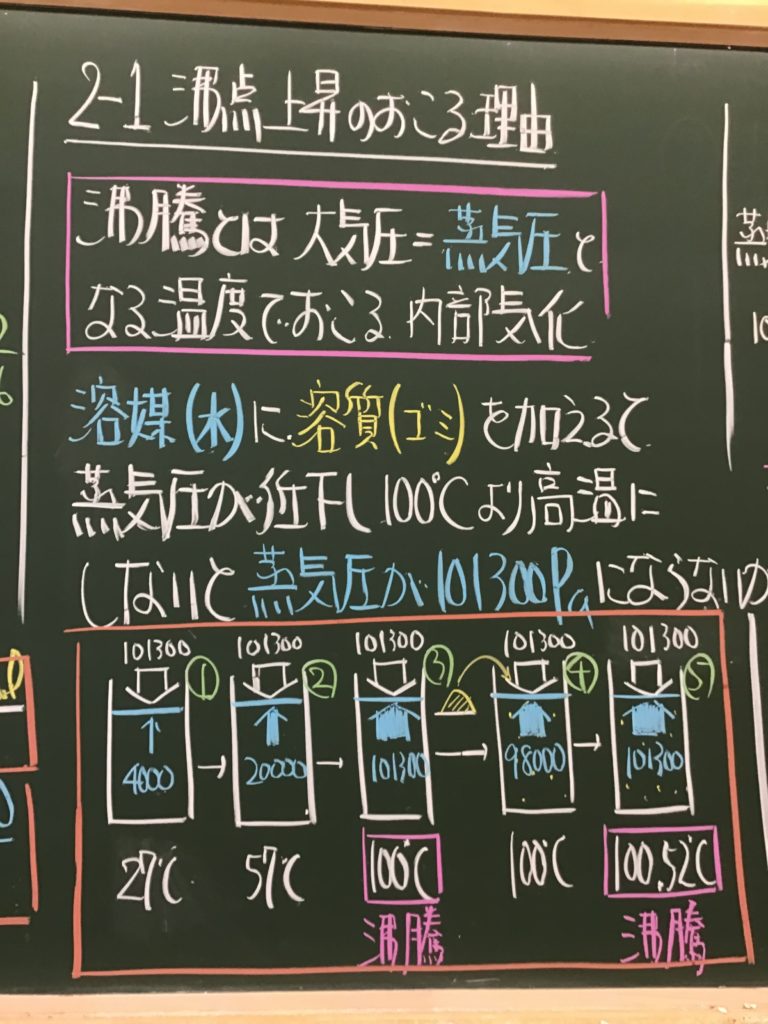 2-1 沸点上昇のおこる理由
沸騰とは 大気圧=蒸気圧と
なる温度でおこる 内部気化
溶媒(水)に 容質(ゴミ)を加えると
蒸気圧が低下し100℃より高温に
しないと 蒸気圧が101300Paにならないか
101300 ① 101300 ② 101300 ③ 101300 ④ 101300 ⑤
4000 → 20000 → 101300 → 98000 → 101300
27℃ 57℃ 100℃ 100℃ 100.52℃
沸騰 沸騰